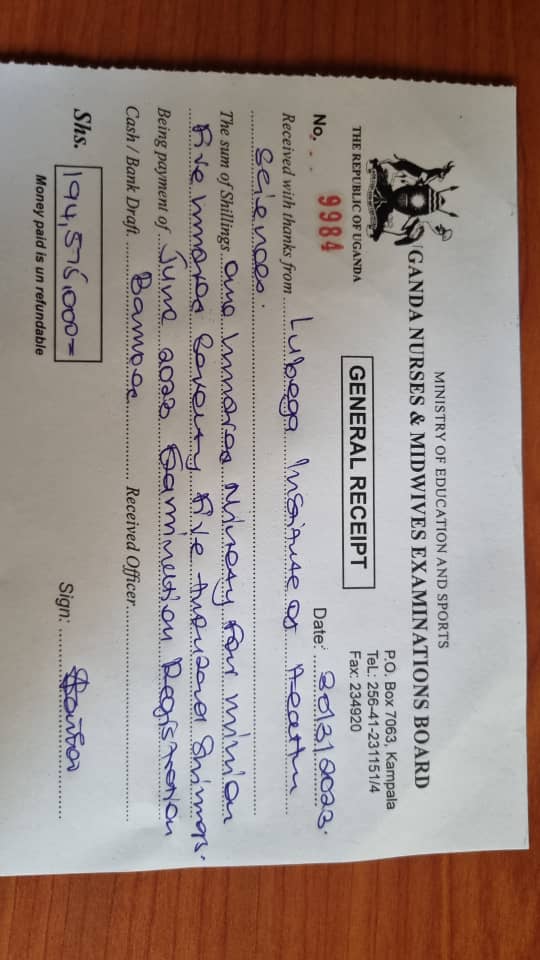 MINISTRY OF EDUCATION AND SPORTS
GANDA NURSES & MIDWIVES EXAMINATIONS BOARD
THE REPUBLIC OF UGANDA
P.O. Box 7063, Kampala
Tel: 256-41-231151/4
Fax: 234920
GENERAL RECEIPT
No. 9984
Date: 30/3/2023.
Received with thanks from Lubega Institute of Health
Sciences.
The sum of Shillings one hundred Ninety four million
five hundred seventy five thousand Shillings.
Being payment of June 2023 Examination Registration
Cash / Bank Draft Received Officer
Shs. 194,575,000=
Sign:
Money paid is un refundable